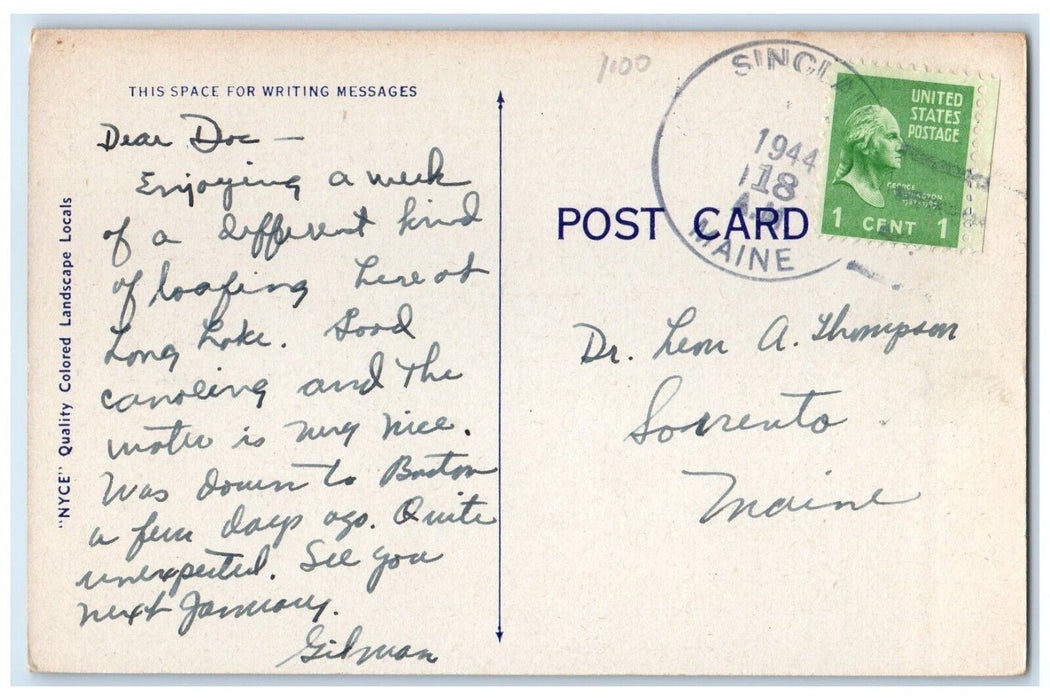 THIS SPACE FOR WRITING MESSAGES
Dear Doc —
Enjoying a week
of a different kind
of loafing here at
Long Lake. Good
canoeing and the
water is very nice.
Was down to Boston
a few days ago. Quite
unexpected. See you
next January.
Gilman
"NYCE" Quality Colored Landscape Locals
1.00
POST CARD
SINCLAI
1944
18
MAINE
UNITED
STATES
POSTAGE
GEORGE
WASHINGTON
1 CENT 1
Dr. Leon A. Thompson
Sorrento
Maine